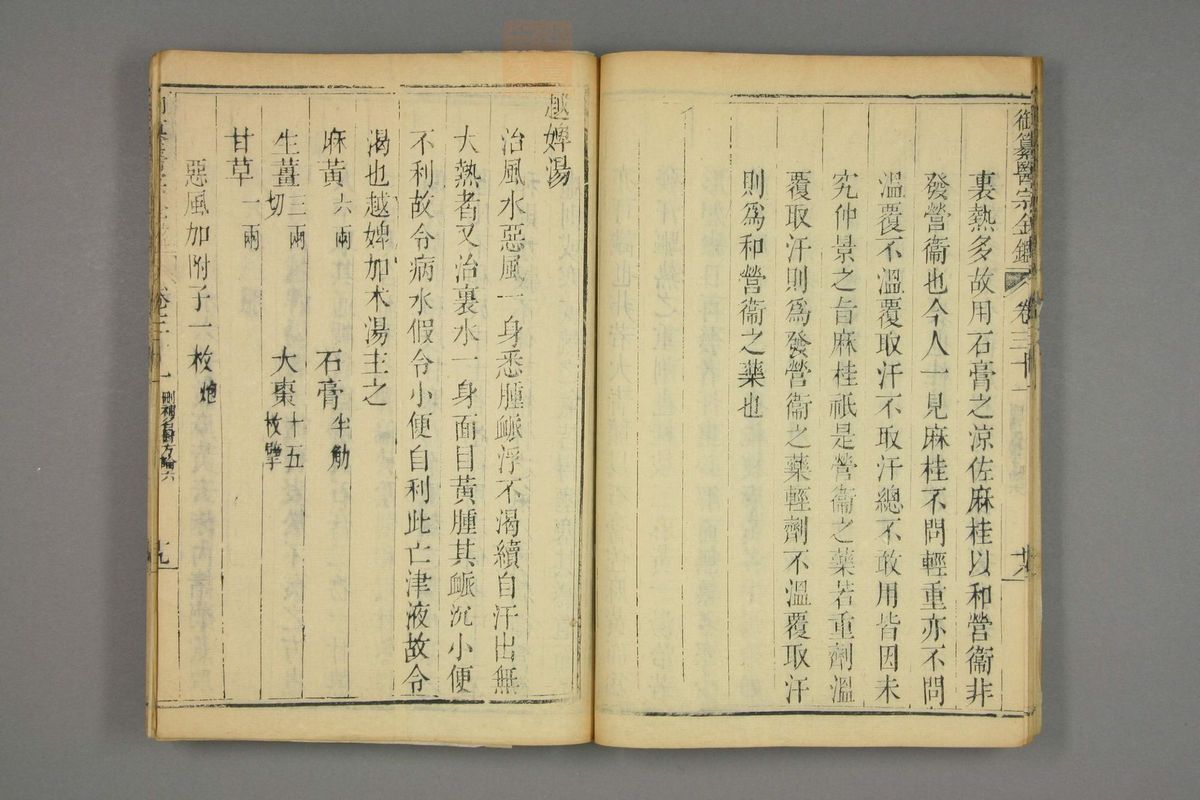 御纂醫宗金鑑 卷三十一
裏熱多故用石膏之凉佐麻桂以和營衞非
發營衞也今人一見麻桂不問輕重亦不問
溫覆不溫覆取汗不取汗總不敢用皆因未
究仲景之旨麻桂祇是營衞之藥若重劑溫
覆取汗則爲發營衞之藥輕劑不溫覆取汗
則爲和營衞之藥也
越婢湯
治風水惡風一身悉腫衇浮不渴續自汗出無
大熱者又治裏水一身面目黃腫其衇沉小便
不利故令病水假令小便自利此亡津液故令
渴也越婢加术湯主之
麻黃六兩 石膏半觔
生薑三兩切 大棗十五枚擘
甘草一兩
惡風加附子一枚炮